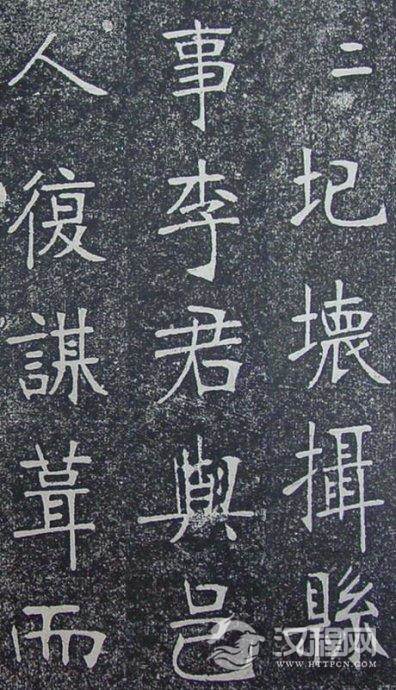 二圮壞攝縣
事李君與邑
人復謀葺而
汉程网
WWW.HTTPCN.COM